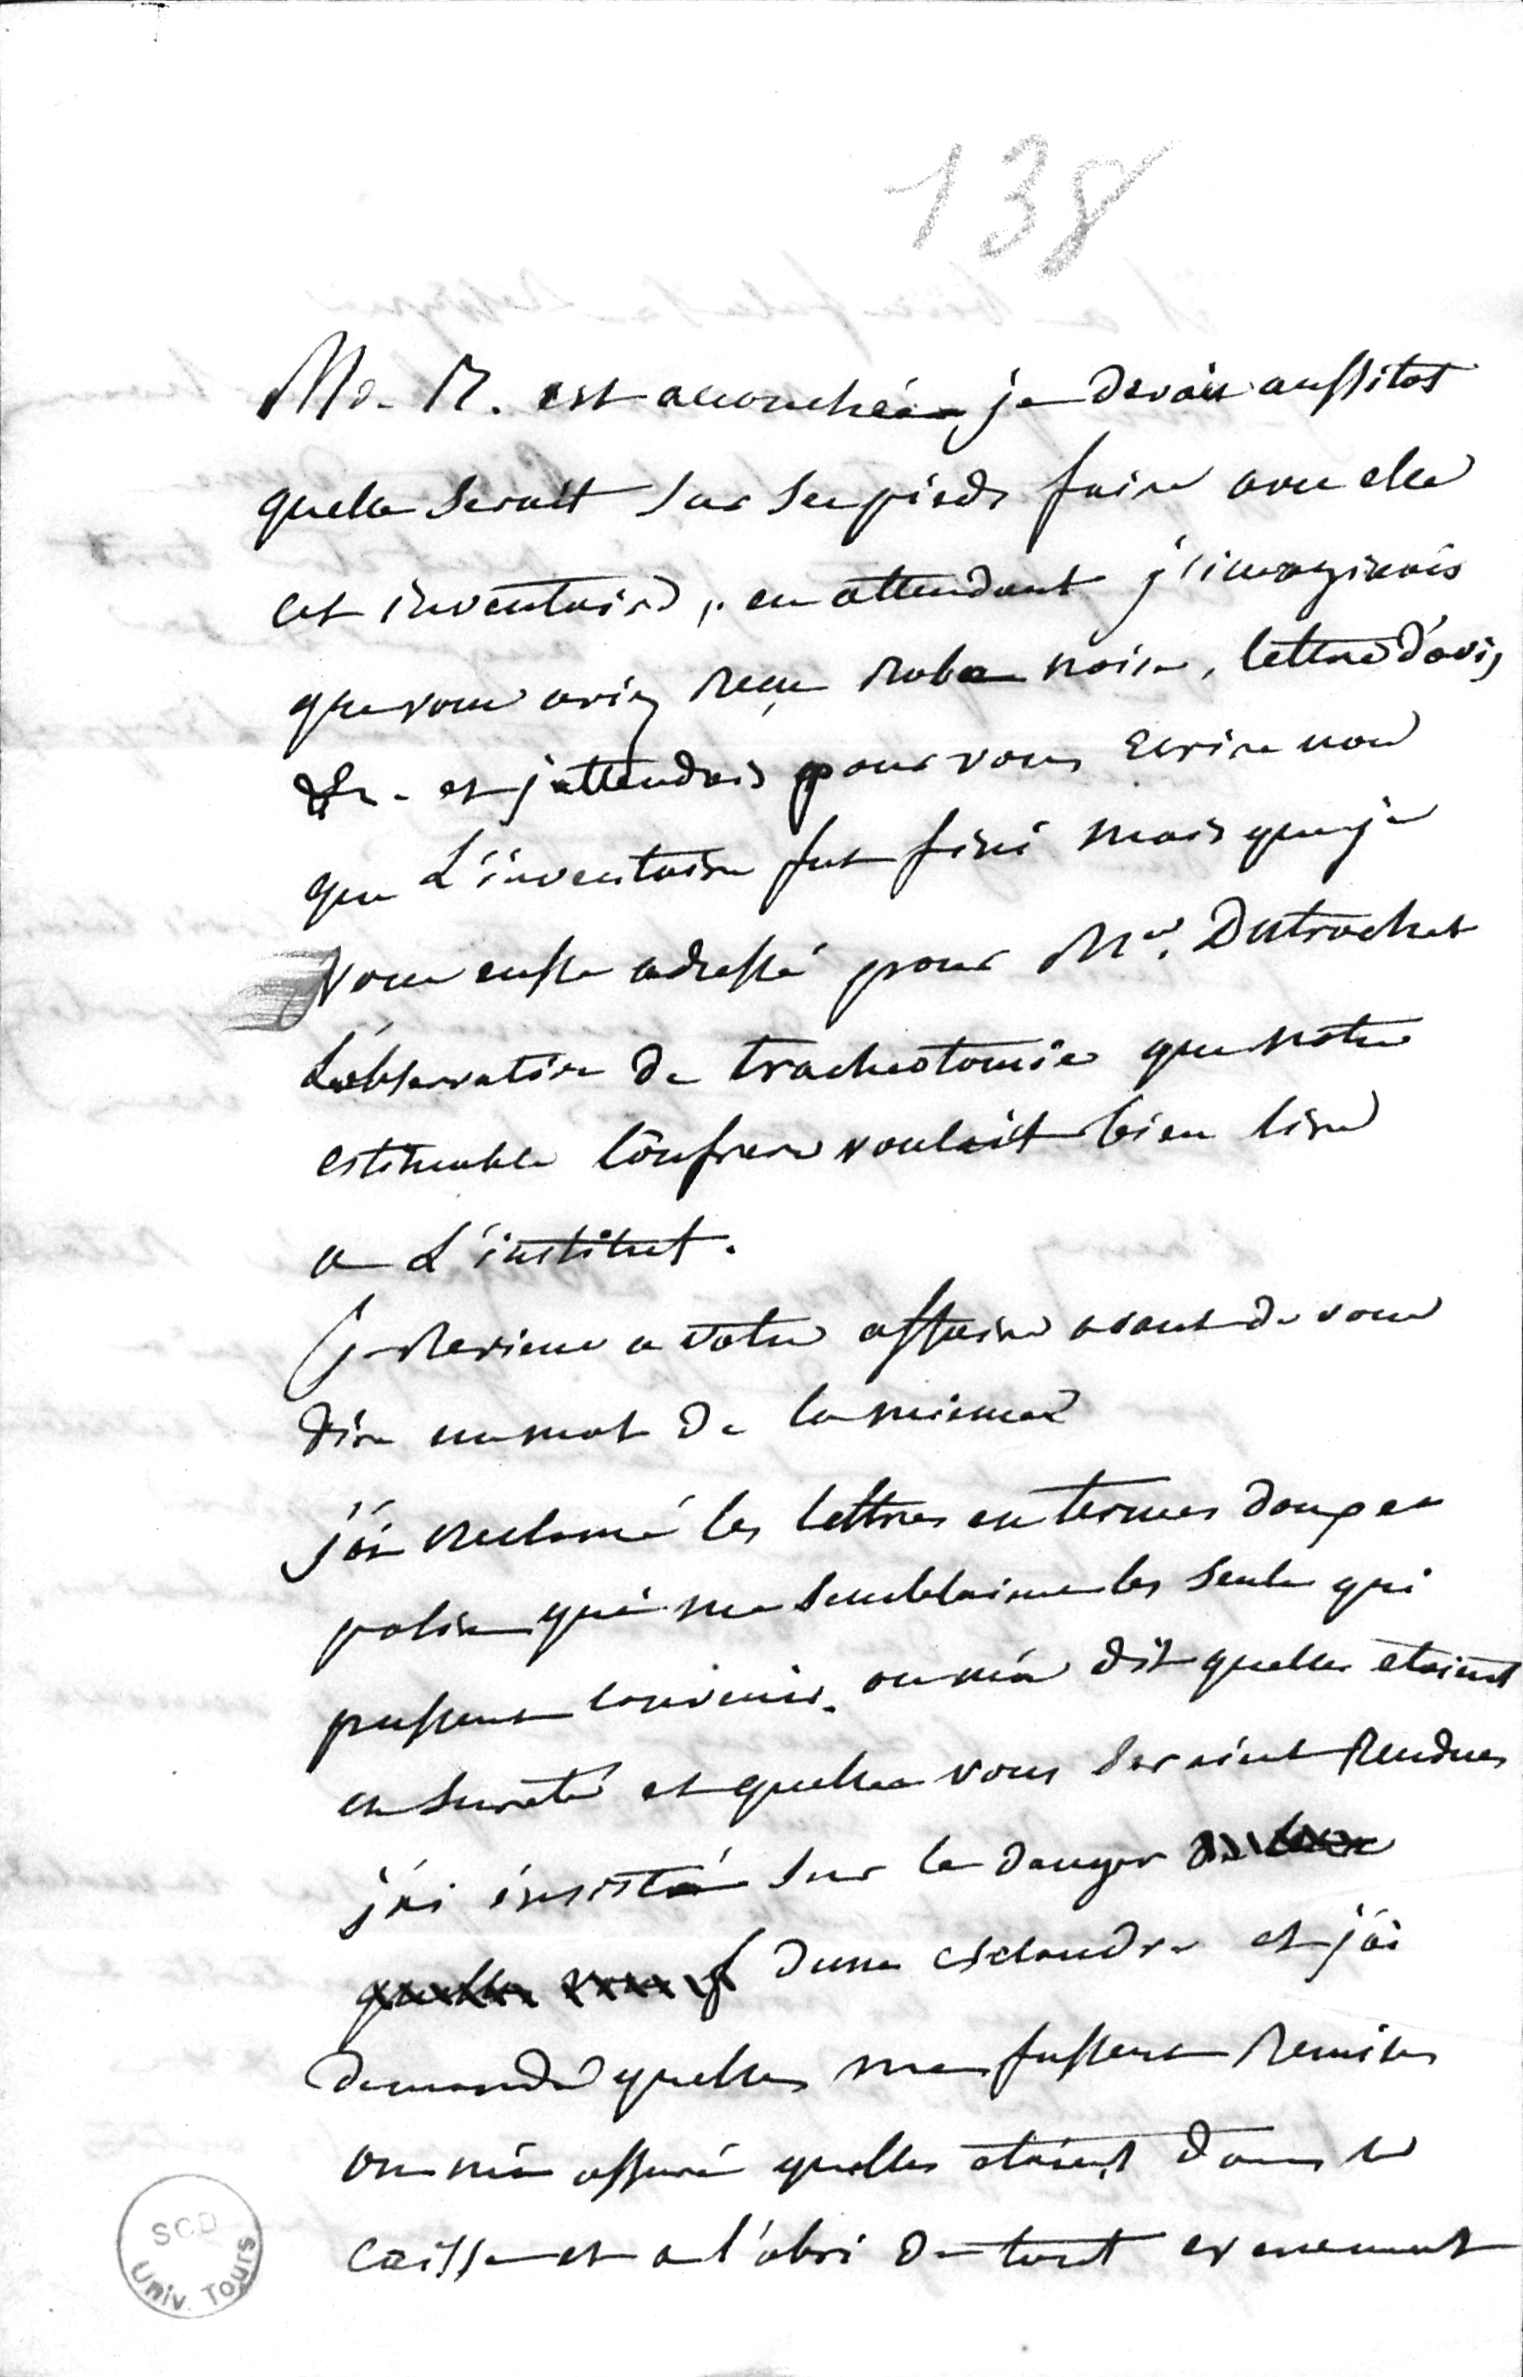 138
Md. R. est accouchée je devais aussitot
quelle serait sur ses pieds faire avec elle
cet inventaire, en attendant j'imaginais
que vous aviez reçu robe noire, lettre d'avis
&c. et j'attendais pour vous ecrire non
que L'inventaire fut fini mais que je
vous eusse adressé pour Mr. Dutrochet
L'observation de tracheotomie que notre
estimable confrere voulait bien lire
a L'institut.
Je reviens a votre affaire avant de vous
dire un mot de la mienne
j'ai reclamé les lettres en termes doux et
polis qui me semblaient les seuls qui
pussent convenir. on m'a dit quelles etaient
en sureté et quelles vous seraient rendues
j'ai insisté sur le danger
dune esclandre et j'ai
demandé quelles me fussent remises
on m'a assuré quelles etaient dans la
caisse et a l'abri de tout evenement
SCD
Univ. Tours